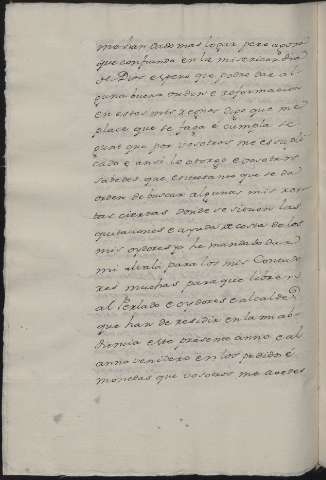 me han dado mas logar pero agora
que confianda en la misericordia
de Dios espero que podre dar al
guna buena orden e reformacion
en estos mis regnos digo que me
place que se faga e cumpla se
gunt que por vosotros me es supli
cado e ansi lo otorgo e vosotros
sabedes que entretanto que se da
orden de buscar algunas mis ren
tas ciertas donde se situen las
quitaciones e ayuda de costa de los
mis oydores yo he mandado dar
mi alvala para los mis Contado
res mayores para que libren
al Perlado e oydores e alcaldes
que han de residir en la mi abd
diencia este presente anno e al
anno venidero en los pedidos e
monedas que vosotros me avedes